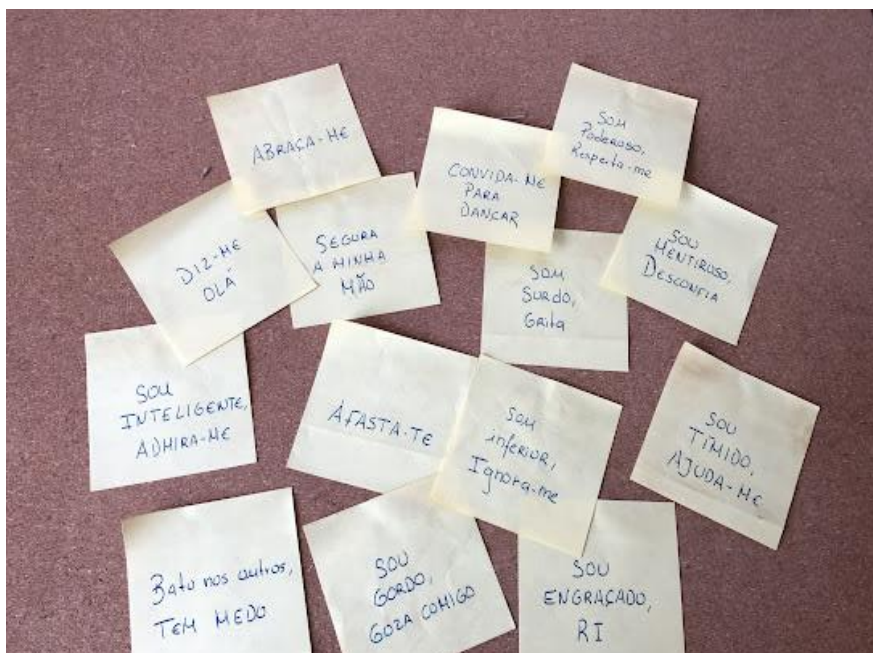 ABRAÇA-ME
CONVIDA-ME
PARA
DANÇAR
SOU
Poderoso,
Respeita-me
DIZ-ME
OLÁ
SEGURA
A MINHA
MÃO
SOU
SURDO,
Grita
SOU
MENTIROSO,
DESCONFIA
SOU
INTELIGENTE,
ADMIRA-ME
AFASTA-TE
SOU
inferior,
Ignora-me
SOU
TÍMIDO,
AJUDA-ME
Bato nos outros,
TEM MEDO
SOU
GORDO,
GOZA COMIGO
SOU
ENGRAÇADO,
RI